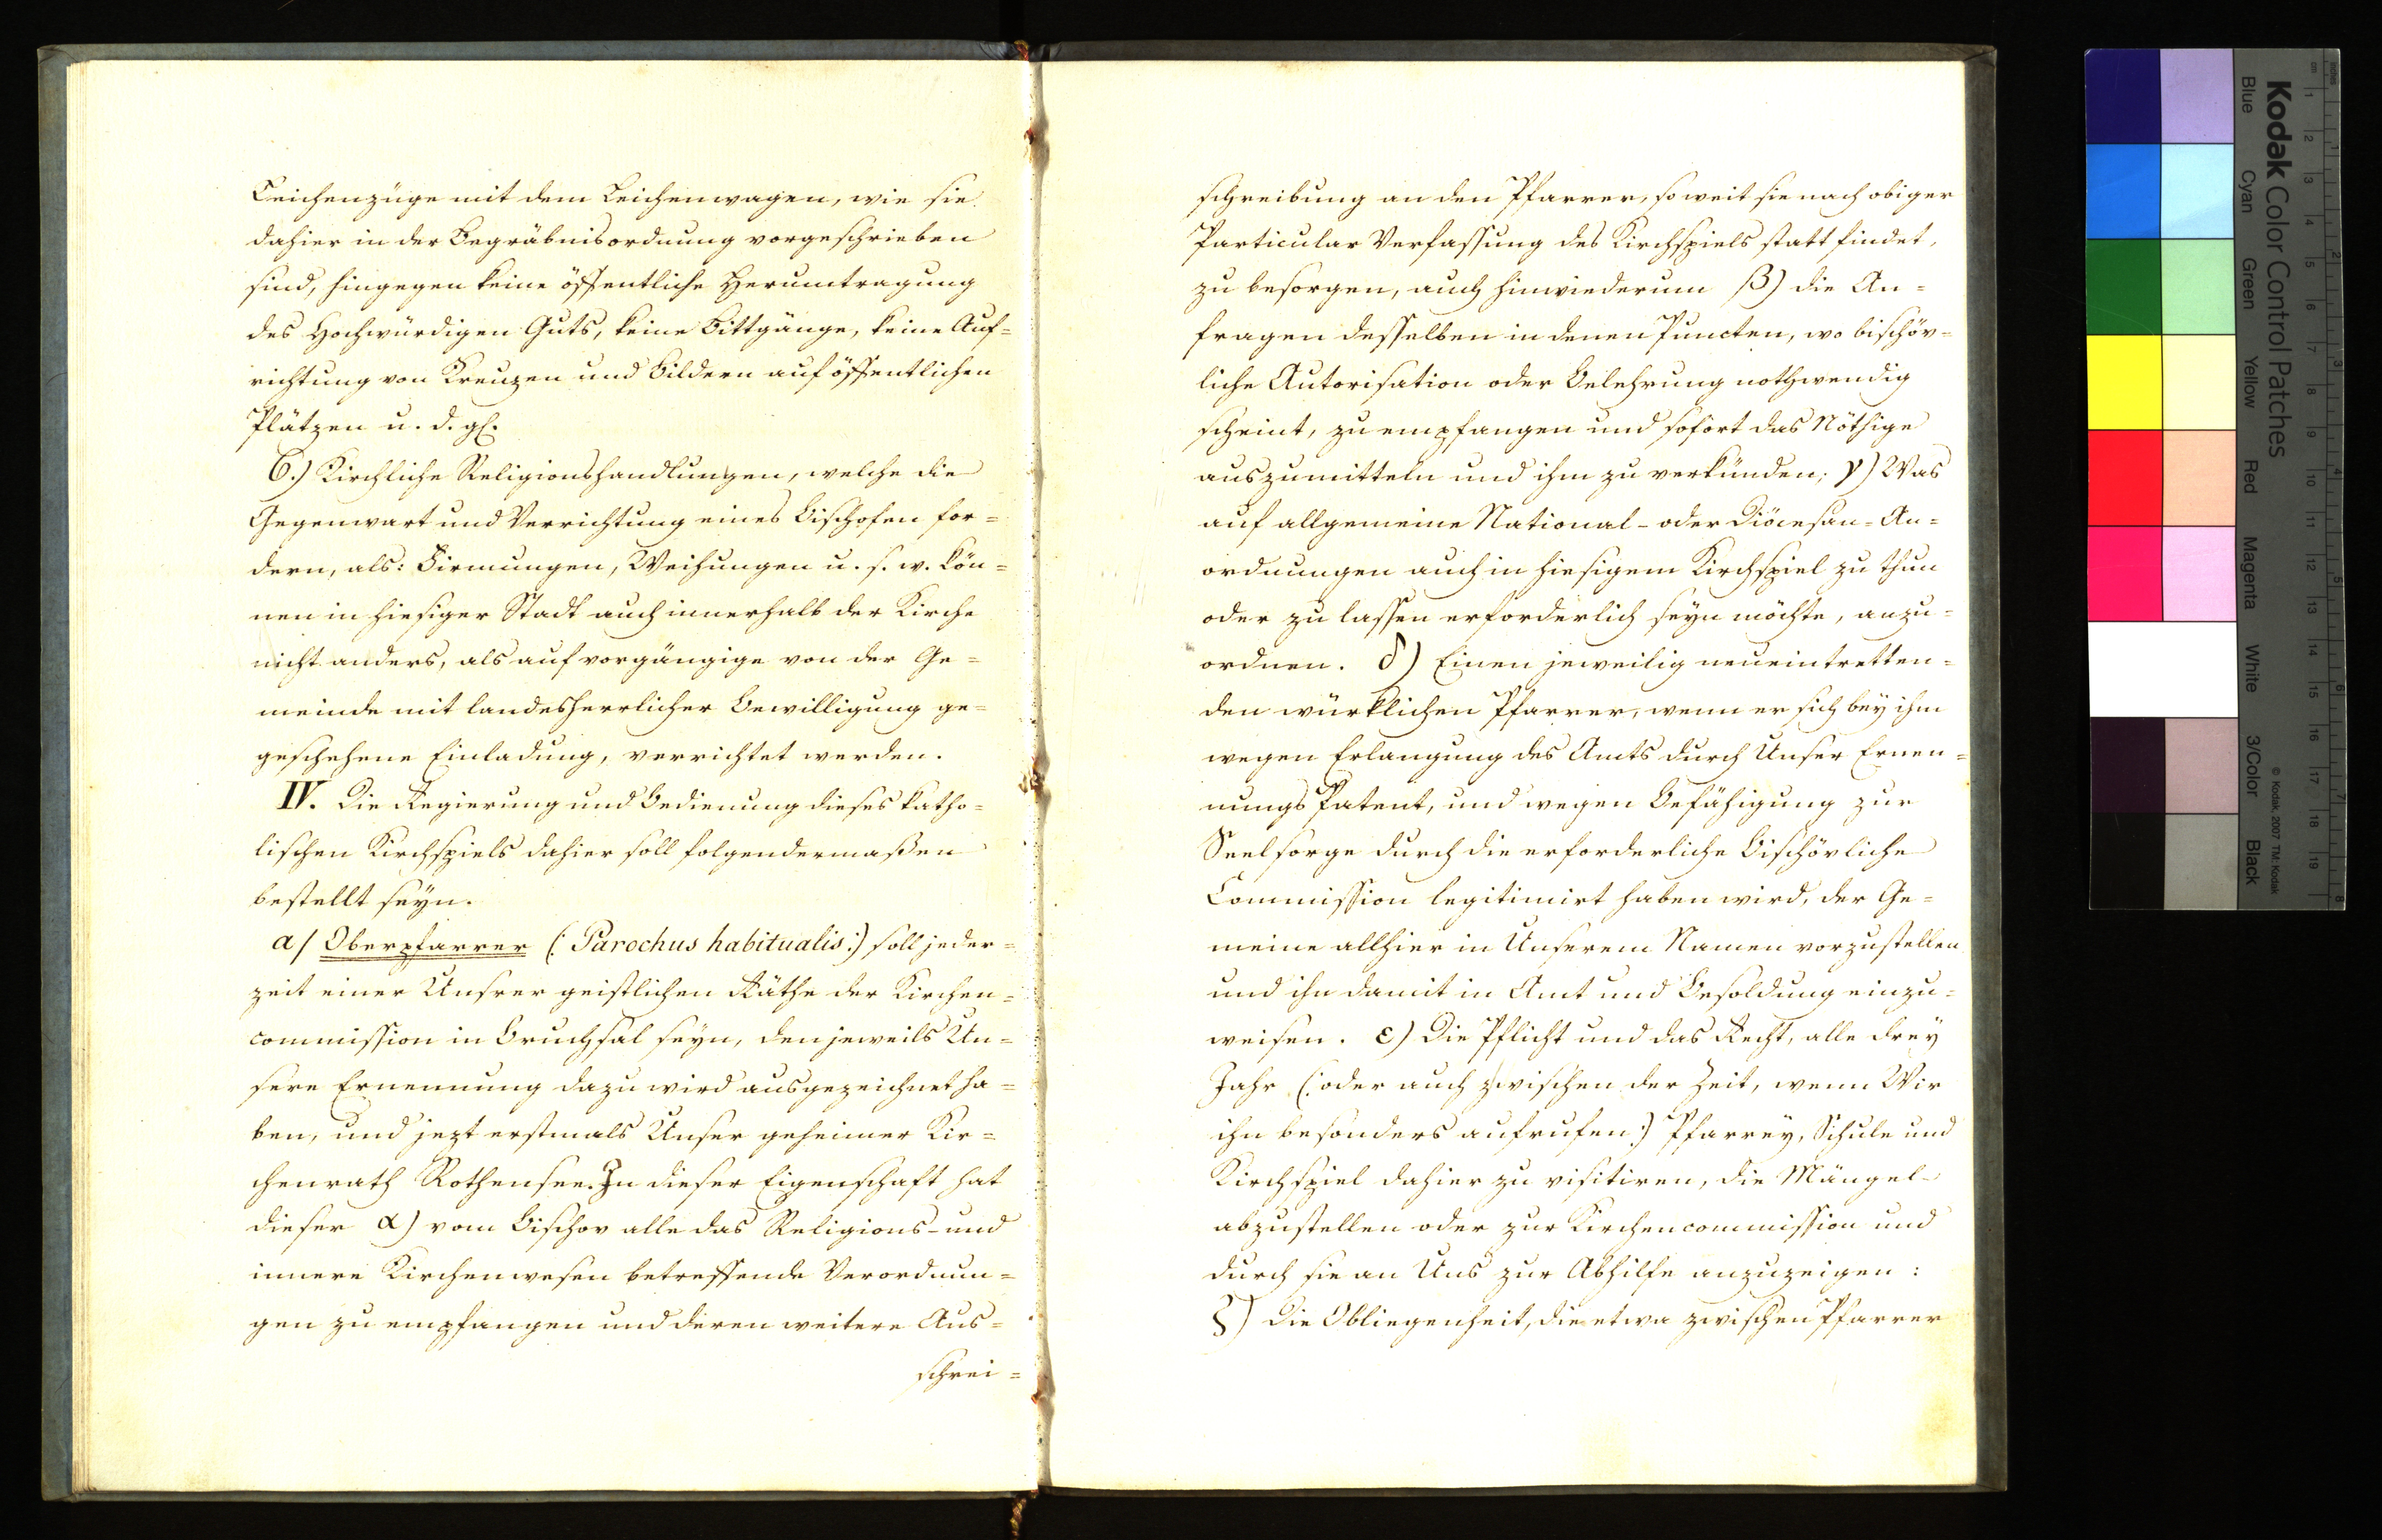 Leichenzüge mit dem Leichenwagen, wie sie
dahier in der Begräbnisordnung vorgeschrieben
sind, hingegen keine öffentliche Herumtragung
des Hochwürdigen Guts, keine Bittgänge, keine Auf=
richtung von Kreuzen und Bildern auf öffentlichen
Plätzen u. d. gl.
6.) Kirchliche Religionshandlungen, welche die
Gegenwart und Verrichtung eines Bischofen for=
dern, als: Firmungen, Weihungen u. s. w. kön=
nen in hiesiger Stadt auch innerhalb der Kirche
nicht anders, als auf vorgängige von der Ge=
meinde mit landesherrlicher Bewilligung ge=
geschehene Einladung, verrichtet werden.
IV. Die Regierung und Bedienung dieses katho=
lischen Kirchspiels dahier soll folgendermaßen
bestellt seyn.
a/ Oberpfarrer (: Parochus habitualis :) soll jeder=
zeit einer Unsrer geistlichen Räthe der Kirchen=
commission in Bruchsal seyn, den jeweils Un=
sere Ernennung dazu wird ausgezeichnet ha=
ben, und jezt erstmals Unser geheimer Kir=
chenrath Rothensee. In dieser Eigenschaft hat
dieser α) vom Bischov alle das Religions- und
innere Kirchenwesen betreffende Verordnun=
gen zu empfangen und deren weitere Aus=
schrei=
schreibung an den Pfarrer, so weit sie nach obiger
Particular Verfassung des Kirchspiels statt findet,
zu besorgen, auch hinwiederum β) die An=
fragen desselben in denen Puncten, wo bischöv=
liche Autorisation oder Belehrung nothwendig
scheint, zu empfangen und sofort das Nöthige
auszumitteln und ihm zu verkünden; γ) Was
auf allgemeine National- oder Diöcesan=An=
ordnungen auch in hiesigem Kirchspiel zu thun
oder zu lassen erforderlich seyn möchte, anzu=
ordnen. δ) Einen jeweilig neueintretten=
den würklichen Pfarrer, wenn er sich bey ihm
wegen Erlangung des Amts durch Unser Ernen=
nungs Patent, und wegen Befähigung zur
Seelsorge durch die erforderliche Bischövliche
Commission legitimirt haben wird, der Ge=
meine allhier in Unserem Namen vorzustellen
und ihn damit in Amt und Besoldung einzu=
weisen. ε) Die Pflicht und das Recht, alle drey
Jahr (: oder auch zwischen der Zeit, wenn Wir
ihn besonders aufrufen :) Pfarrey, Schule und
Kirchspiel dahier zu visitiren, die Mängel
abzustellen oder zur Kirchencommission und
durch sie an Uns zur Abhilfe anzuzeigen:
ζ) Die Obliegenheit, die etwa zwischen Pfarrer
Kodak Color Control Patches
Blue Cyan Green Yellow Red Magenta White 3/Color Black
© Kodak, 2007 TM: Kodak
cm 1 2 3 4 5 6 7 8 9 10 11 12 13 14 15 16 17 18 19
inches 1 2 3 4 5 6 7 8